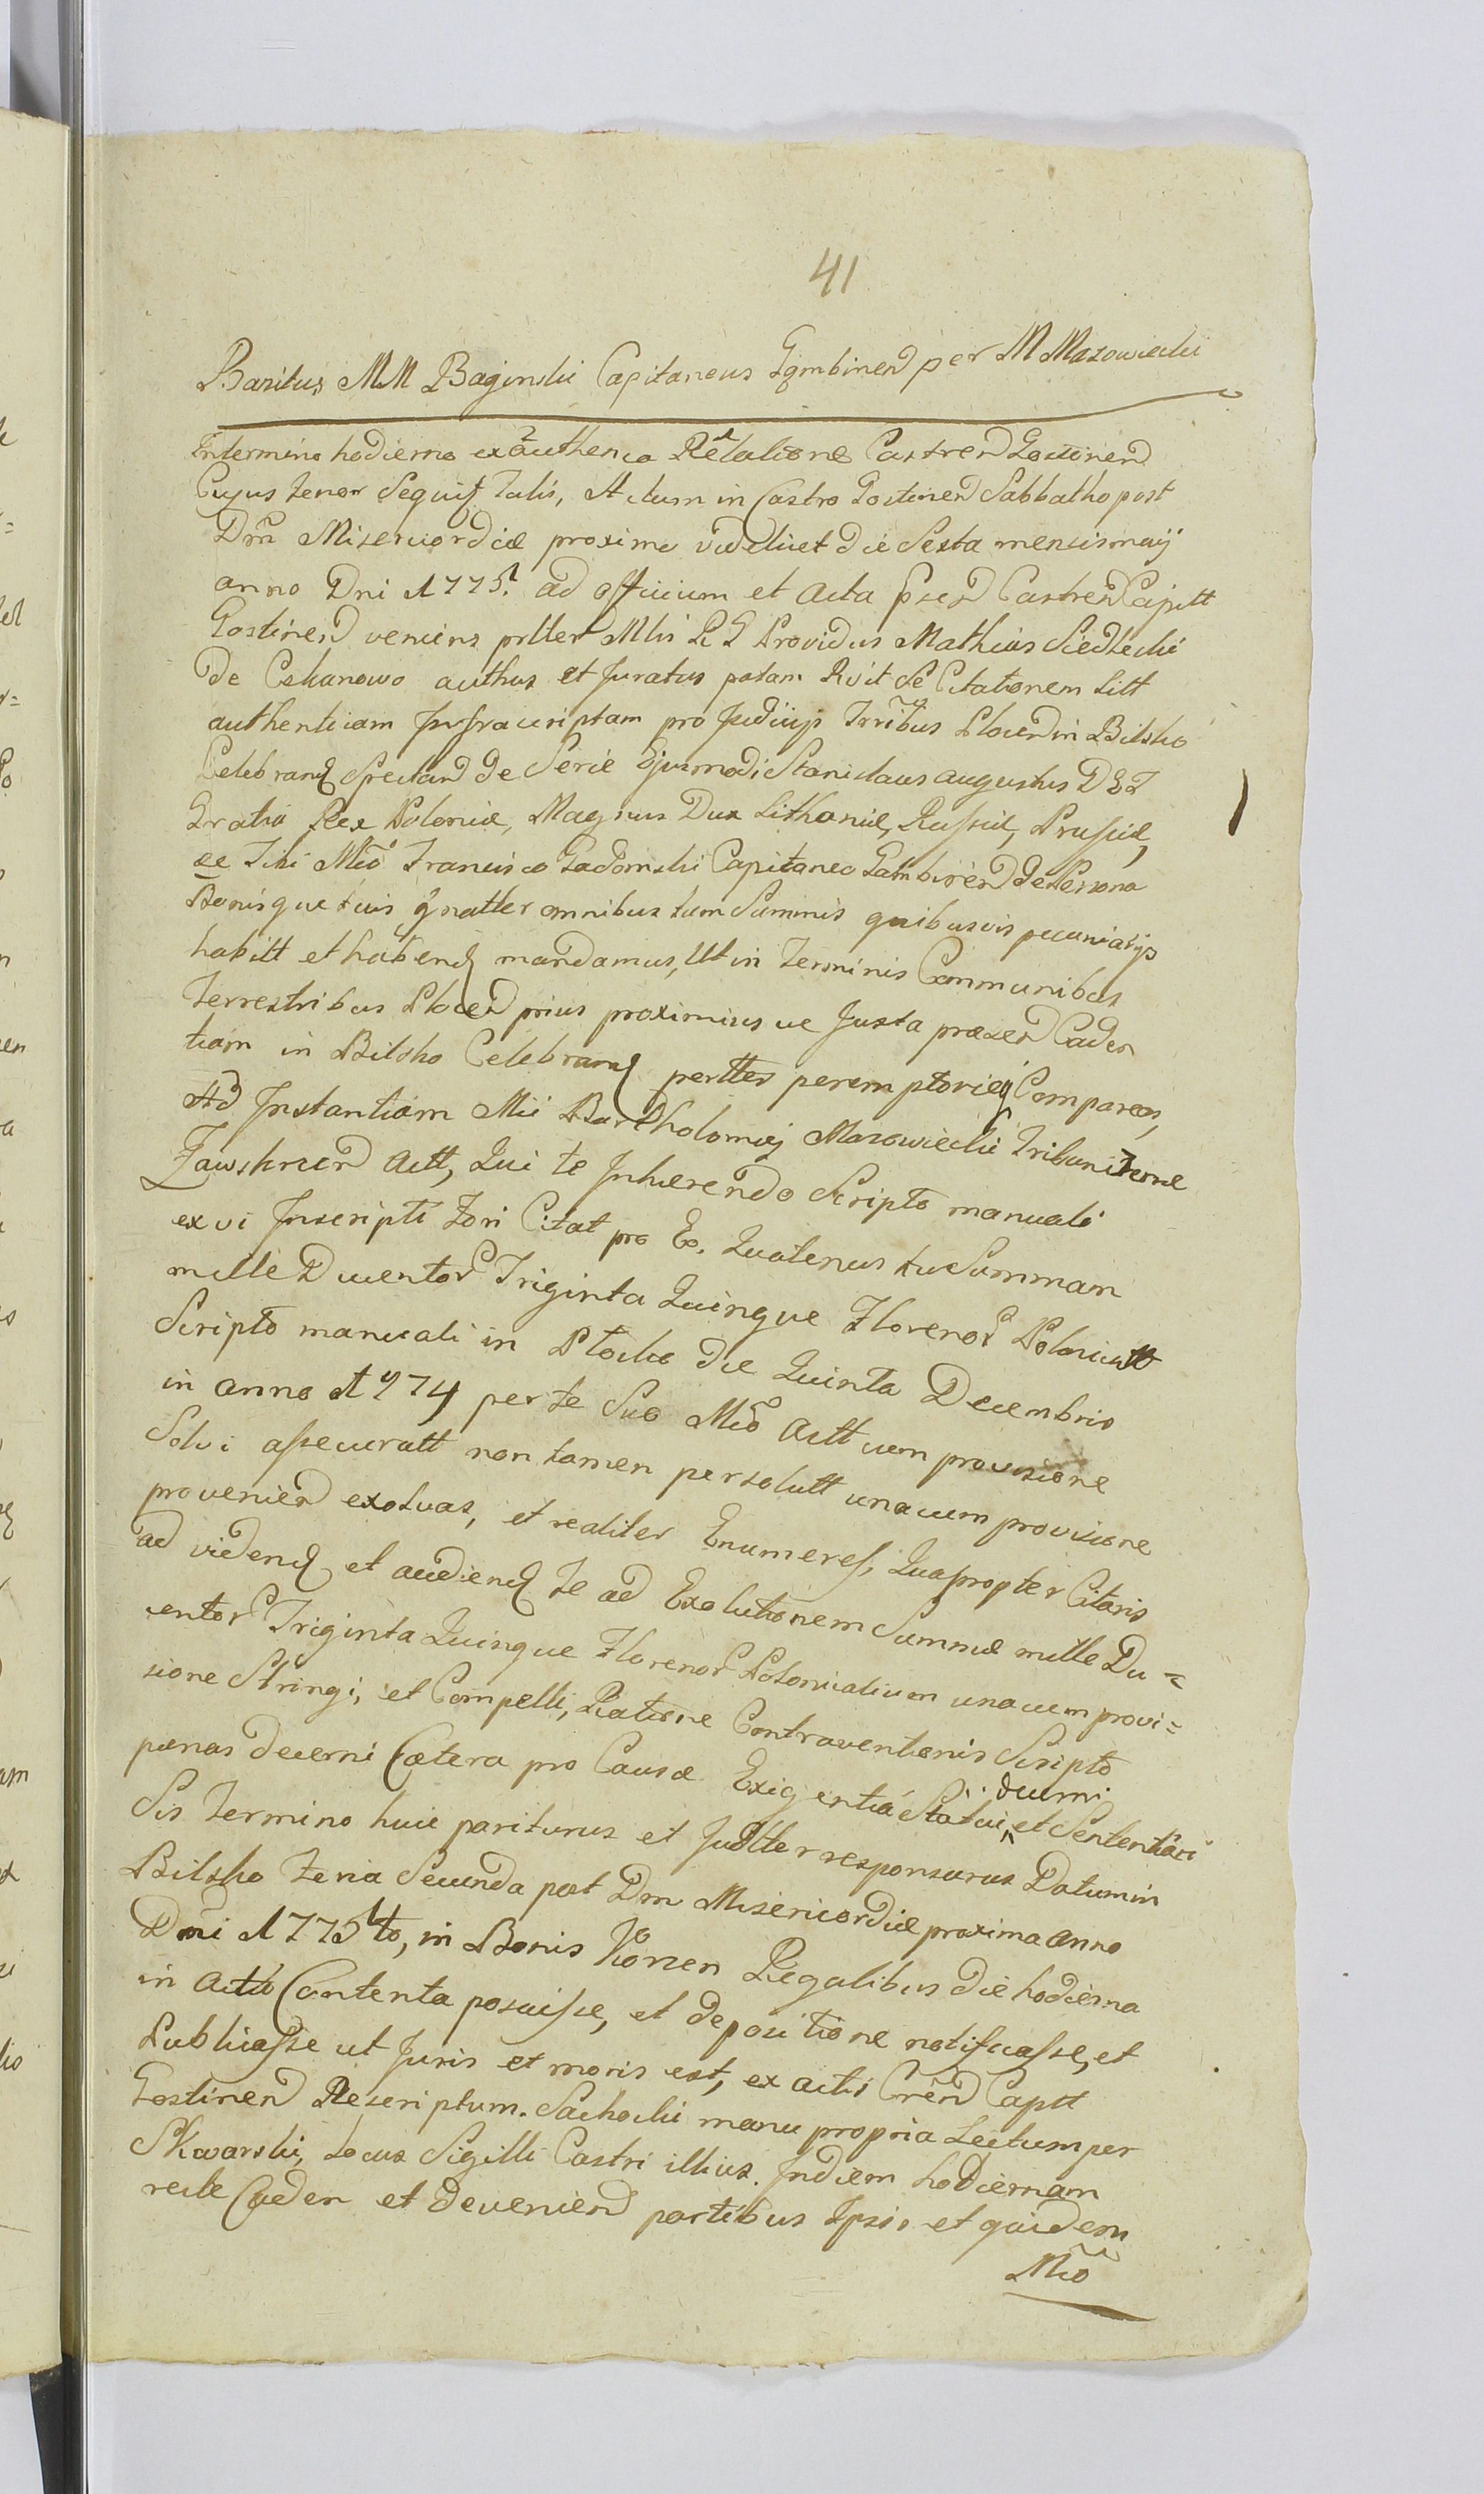 41
Banitus MM Baginski Capitaneus Gombinen per M Mazowiecki
In termino hodierno ex authen͠ca Relatione Castren Gostinen
Cujus tenor Sequit͠ Talis, Actum in Castro Gostinen Sabbatho post
Dm̃ Misericordiæ proximo videlicet die Sexta mensis maij
anno Dni 1775. ad officium et Acta præs Castren Capitt
Gostinen veniens prltter Mlis R G Providus Mathias Siedlecki
de Cekanowo authus et Juratus palam Rvit Se Citationem Litt
authenticam Infrascriptam pro Judicijs Trribus Plocen in Bilsko
Celebrand Spectand de Serie Ejusmodi Stanislaus augustus DEI
Gratia Rex Poloniæ, Magnus Dux Lithaniæ, Russiæ, Prussiæ,
ee Tibi Mco Francisco Gadomski Capitaneo Gambinen de Persona
Bonisque tuis gnatter omnibus tum Summis quibusvis pecuniarijs
habitt et habend mandamus, Ut in Terminis Communibus
Terrestribus Plocen prius proximius ve Juxta præsen Caden
tiam in Bilsko Celebrand perltter peremptorieq Compareas,
Ad Instantiam Mci Bartholomej Mazowiecki Tribuni Terræ
Zawskrzen Actt, Qui te Inhærendo Scripto manuali
ex vi Inscripti fori Citat pro Eo. Quatenus tu Summam
mille Ducentor Triginta Quinque Florenor Polonicatt
Scripto manuali in Plocko die Quinta Decembris
in anno 1774 per te Suo Mco Actt cum provisione
Solvi assecuratt non tamen persolutt unacum provisione
provenien exolvas, et realiter Enumeres, Quapropter Citaris
ad vidend et audiend te ad Exolutionem Summæ mille Du=
centor Triginta Quinque Florenor Polonicalium unacum provi=
sione Stringi, et Compelli, Ratione Contraventionis Scripto
pœnas decerni Cætera pro Causæ Exigentia Statui, decerni et Sententiari
Sis Termino huic pariturus et Judtter responsurus Datum in
Bilsko Feria Secunda post Dm̃ Misericordiæ proxima Anno
Dni 1775to, in Bonis Korzen Regalibus die hodierna
in Actu Contenta posuisse, et de positione notificasse, et
Publicasse ut Juris et moris est, ex actis Cren Captt
Gostinen Rescriptum. Sachocki manu propria Lectum per
Skwarski, Locus Sigilli Castri illius. In diem hodiernam
recte Caden et devenien partibus Ipsis et quidem
Mco